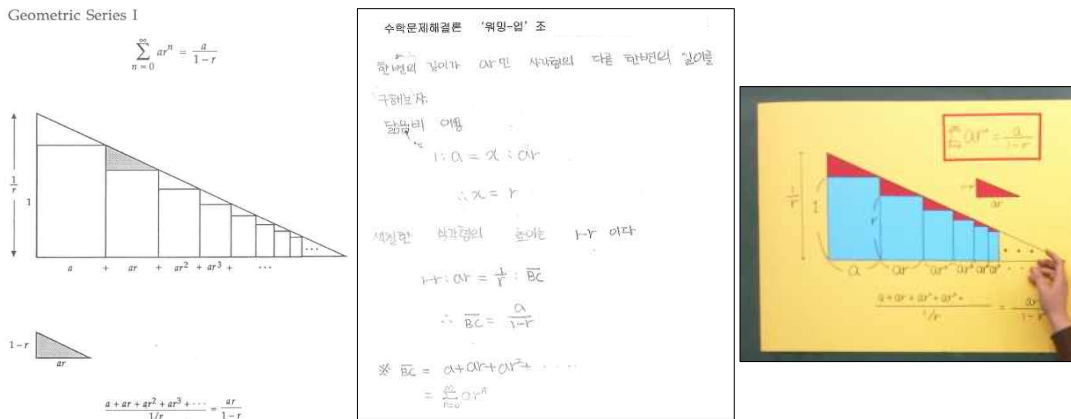 Geometric Series I
∞
∑ arⁿ = a/(1 − r)
n = 0
1/r
1
a + ar + ar² + ar³ + ···
1 − r
ar
(a + ar + ar² + ar³ + ···)/(1/r) = ar/(1 − r)
수학문제해결론 '워밍-업' 조
한변의 길이가 ar인 사각형의 다른 한변의 길이를
구해보자.
닮음비 이용
1 : a = x : ar
∴ x = r
색칠한 삼각형의 높이는 1-r 이다
1-r : ar = 1/r : BC
∴ BC = a/(1-r)
※ BC = a + ar + ar² + ····
= ∑ arⁿ
n=0
∑ arⁿ = a/(1-r)
1/r
1
r
1-r
ar
a ar ar² ar³
(a + ar + ar² + ar³ + )/(1/r) = ar/(1-r)